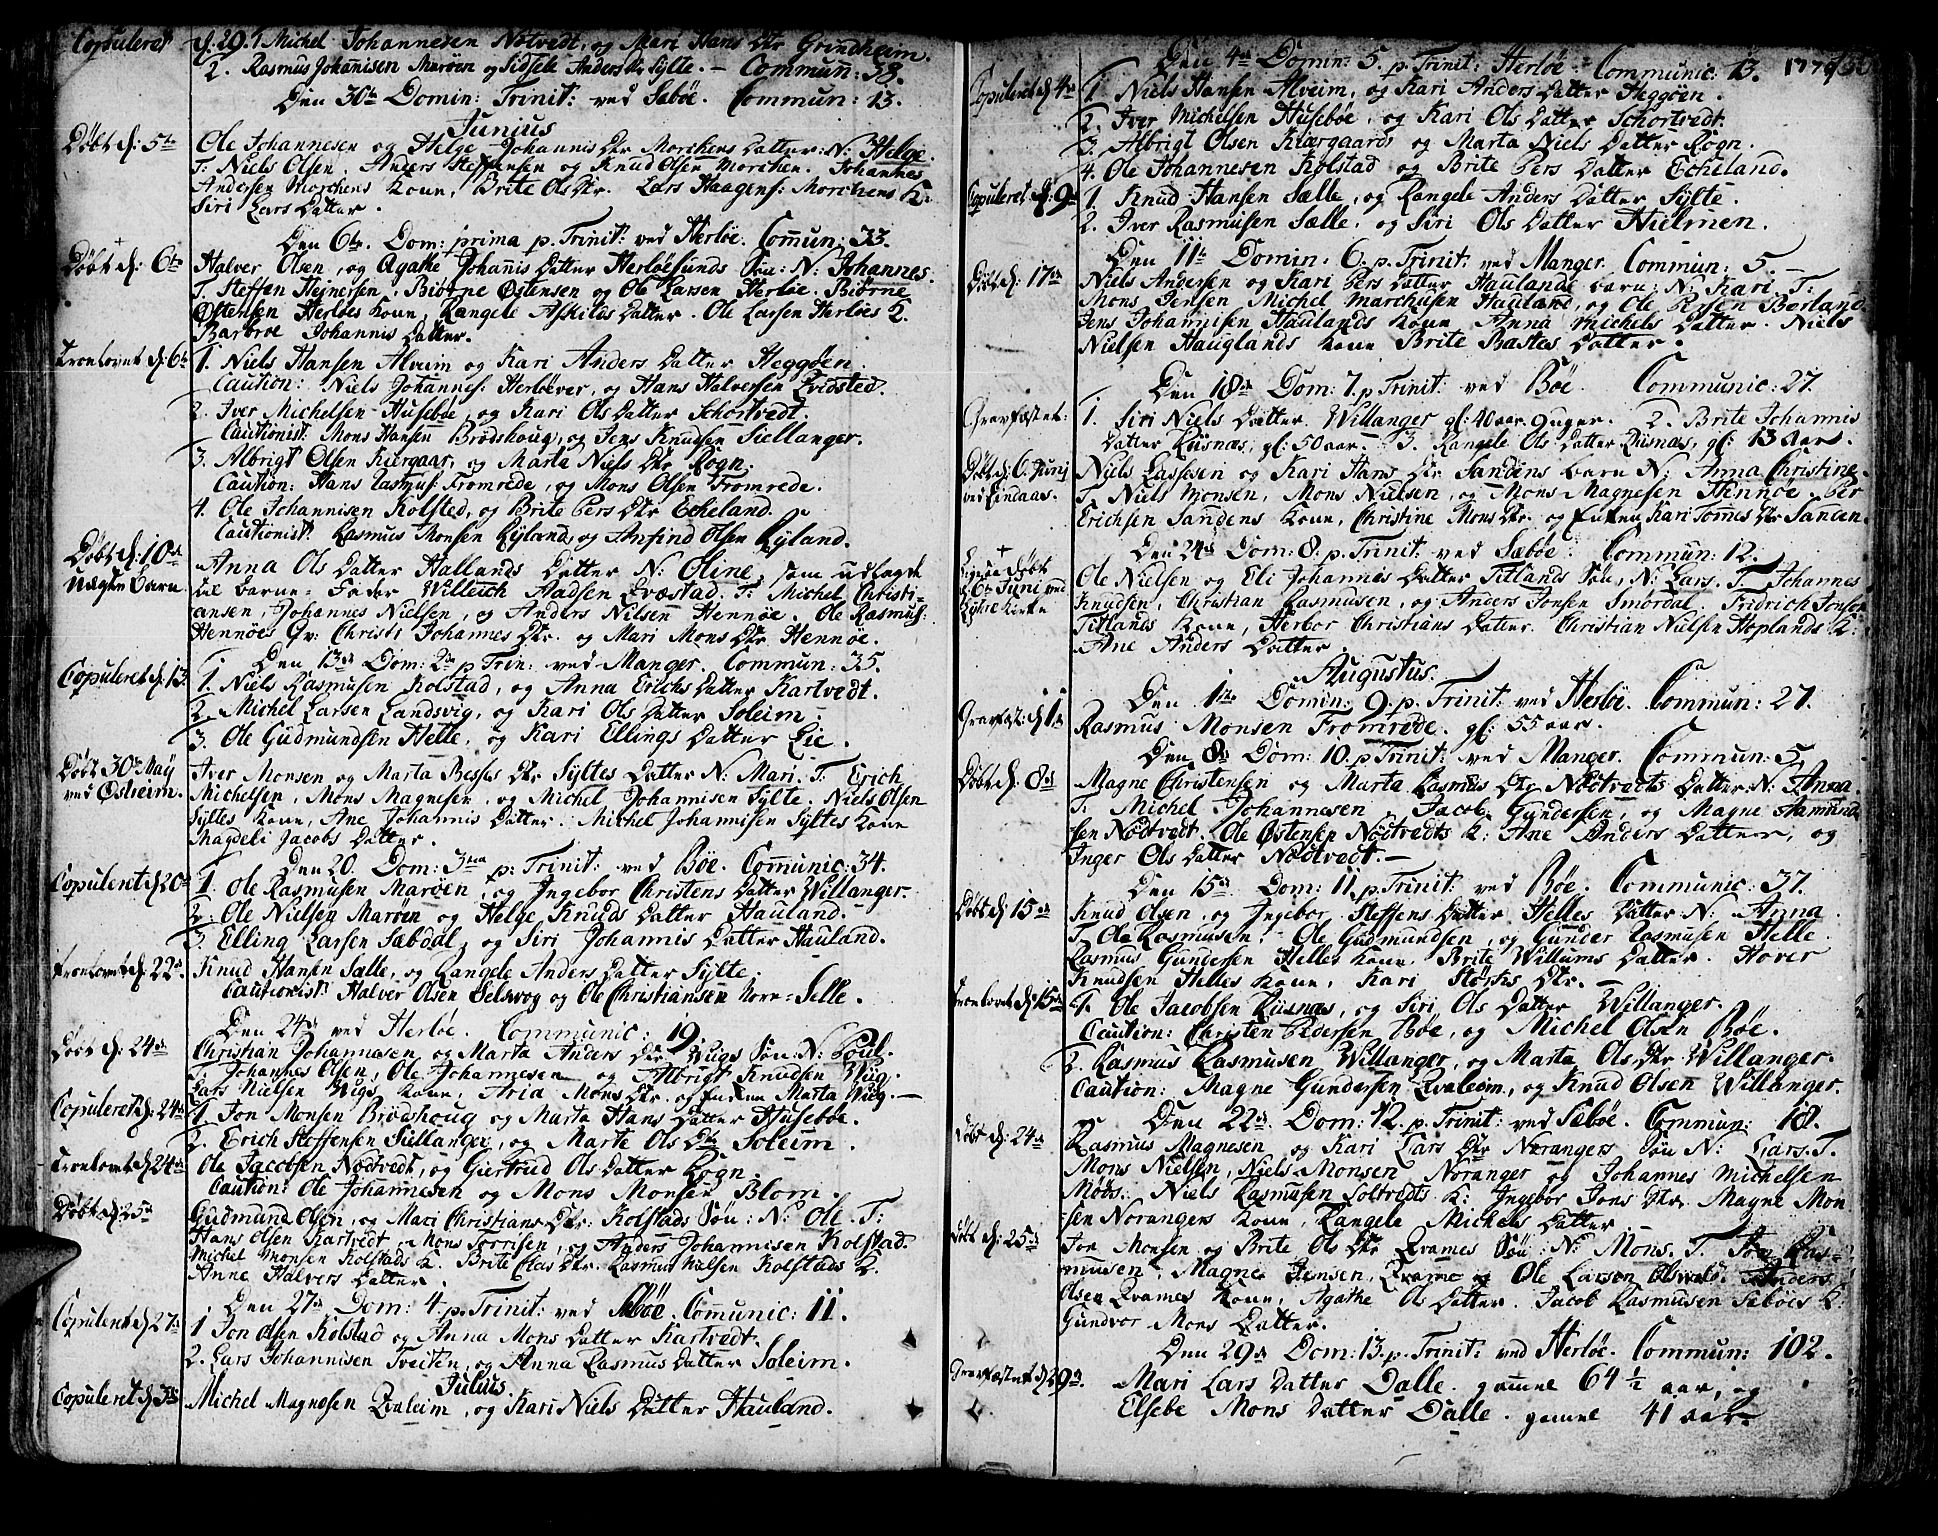 Copuleret d. 29. 1 Michel Johannesen Nötvedt, og Mari Hans Dtr Grindheim.
2. Rasmus Johannisen Maröen og Sidsele Anders Dtr Sylte. – Commun: 58.
Den 30te Domin: Trinit: ved Sæbøe. Commun: 13.
Junius
Döbt d: 5te Ole Johannesen og Helge Johannis Dtr Morchens Datter: N: Helge.
T: Niels Olsen, Anders Steffensen og Knud Olsen Morchen. Johannes
Andersen Morchens Kone, Brite Ols Dtr. Lars Haagens: Morchens K:
Siri Lars Datter.
Den 6te. Dom: prima p. Trinit: ved Herløe. Commun: 33.
Döbt d: 6te Halver Olsen, og Agathe Johannis Datter Herløesunds Søn: N: Johannes.
T. Steffen Hejnersen, Biörne Østensen og Ole Larsen Herløe. Biörne
Østensen Herløes Kone, Rangele Askilds Datter. Ole Larsen Herløes K.
Barbroe Johannis Datter.
Troelovet d. 6te 1. Niels Hansen Alveim og Kari Anders Datter Heggöen
Caution: Niels Johannes: Herløever, og Hans Halversen Qvidsted.
2. Iver Michelsen Husebøe, og Kari Ols Datter Schortvedt.
Cautionist: Mons Hansen Brødshoug, og Jens Knudsen Siellanger.
3. Albrigt Olsen Kiergaar, og Marta Niels Dtr Rogn.
Caution: Hans Rasmus: Fromrede, og Mons Olsen Fromrede.
4. Ole Johannisen Kolsted, og Brite Pers Dtr Echeland.
Cautionist: Rasmus Monsen Ryland, og Anfind Olsen Ryland.
Döbt d: 10de Anna Ols Datter Hallands Datter N: Oline, som udlagde
Uægte Barn til barne-Fader Willich Aadsen Qvæstad. T: Michel Christi-
ansen, Johannes Nielsen, og Anders Nilsen Hennøe. Ole Rasmus:
Hennøes Qv: Christi Johannes Dtr. og Mari Mons Dtr Hennøe.
Den 13de Dom: 2da p. Trin: ved Manger. Commun: 35.
Copuleret d. 13. 1. Niels Rasmusen Kolstad, og Anna Erichs Datter Kartvedt.
2. Michel Larsen Landsvig, og Kari Ols Datter Soleim.
3. Ole Gudmundsen Helle, og Kari Ellings Datter Lie.
Döbt 30te May Iver Monsen og Marta Besses Dtr Syltes Datter N: Mari. T: Erich
ved Østreim. Michelsen, Mons Magnesen, og Michel Johannisen Sylte. Niels Olsen
Syltes Kone, Ane Johannis Datter. Michel Johannisen Syltes Kone
Magdeli Jacobs Datter.
Den 20. Dom: 3tia p: Trinit: ved Bøe. Communic: 34.
Copuleret d 20de 1. Ole Rasmusen Maröen, og Ingebor Christens Datter Willanger.
2. Ole Nielsen Maröen og Helge Knuds Datter Hauland.
3. Elling Larsen Sæbdal, og Siri Johannis Datter Hauland.
Troelovet d: 22de Knud Hansen Sælle, og Rangele Anders Datter Sylte.
Cautionist: Halver Olsen Selsvog og Ole Christiansen Kone-Selle.
Den 24de ved Herløe. Communic: 19.
Döbt d: 24de Christian Johannesen, og Marta Anders Dtr Wugs Søn: N: Poul.
T. Johannes Olsen, Ole Johannesen og Albrigt Knudsen Wug.
Lars Nielsen Wugs Kone, Aria Mons Dtr. og Enken Marta Wug.
Copuleret d: 24de 1. Jon Monsen Brødshoug og Marta Hans Datter Husebøe.
2. Erich Steffensen Siellanger, og Marte Ols Dtr Soleim.
Troelovet d 24de Ole Jacobsen Nödtvedt, og Giertrud Ols Datter Rogn.
Caution: Ole Johannesen og Mons Monsen Blom.
Döbt d 25de Gudmund Olsen, og Mari Christians Dtr: Kolstads Søn: N: Ole. T:
Hans Olsen Kartvedt, Mons Torrisen, og Anders Johannisen Kolstad.
Michel Monsen Kolstads K. Brite Clas Dtr. Rasmus Nielsen Kolstads K.
Anne Halvers Datter.
Den 27de Dom: 4. p. Trinit: ved Sæbøe. Communic: 11.
Copuleret d 27de 1 Jon Olsen Kolstad og Anna Mons Datter Kartvedt.
2. Lars Johannisen Tveiten, og Anna Rasmus Datter Soleim.
Julius.
Copuleret d. Michel Magnesen Qvaleim, og Kari Niels Datter Hauland.
Den 4de Domin: 5. p. Trinit: Herløe. Communic: 13. 1779
Copuleret d. 4de 1. Niels Hansen Alveim, og Kari Anders Datter Heggöen.
2. Iver Michelsen Husebøe, og Kari Ols Datter Schortvedt.
3. Albrigt Olsen Kiærgaard og Marta Niels Datter Rogn.
4. Ole Johannesen Kolstad og Brite Pers Datter Echeland.
Copuleret d. 9de 1. Knud Hansen Sælle, og Rangele Anders Datter Sylte.
2. Iver Rasmusen Sælle, og Siri Ols Datter Hielmen.
Den 11te Domin: 6. p. Trinit: ved Manger. Commun: 5.
Döbt d: 17de Niels Andersen og Kari Pers Datter Haulands barn: N: Kari. T:
Mons Jensen, Michel Marchusen Hauland, og Ole Persen Börland.
Jens Johannisen Haulands Kone Anna Michels Datter. Niels
Nielsen Hauglands Kone Brite Bastes Datter.
Den 18de Dom: 7. p. Trinit: ved Bøe. Communic: 27.
Gravfæstet: 1. Siri Niels Datter Willanger gl: 40 aar 9 uger. 2. Brite Johannis
Datter Riisnæs, gl: 50 aar. 3. Rangele Ols Datter Riisnæs, gl: 13 Aar.
Döbt d. 6. Junj Niels Lassesen og Kari Hans Dtr Sandens barn N: Anna Christine.
ved Lindaas. T. Niels Monsen, Mons Nielsen, og Mons Magnesen Hennøe. Per
Erichsen Sandens Kone, Christine Mons Dtr. og Enken Kari Tommes Dtr Sanden.
Den 24de Dom: 8. p. Trinit: ved Sæbøe. Commun: 12.
Ligesaa Döbt Ole Nielsen og Eli Johannis Datter Titlands Søn, N: Lars. T. Johannes
d. 6te Juni ved Knudsen, Christian Rasmusen, og Anders Jonsen Smördal. Fridrich Jonsen
Lÿkre Kirke Titlands Kone, Herbor Christians Datter. Christian Nielsen Hoplands K:
Ane Anders Datter.
Augustus.
Den 1ste Domin: 9. p. Trinit: ved Herløe. Commun: 27.
Gravfæst: d 1ste Rasmus Monsen Fromrede. gl: 55 aar.
Den 8de Dom: 10. p. Trinit: ved Manger. Commun: 5.
Döbt d: 8de Magne Christensen og Marta Rasmus Dtr Nödtvedts Datter: N: Anna
T. Michel Johannesen, Jacob Gundersen, og Magne Aamund-
sen Nödtvedt. Ole Østensen Nödtvedts K: Ane Anders Datter, og
Inger Ols Datter Nödtvedt. –
Den 15de Dom: 11. p. Trinit: ved Bøe. Communic: 37.
Döbt d: 15de Knud Olsen, og Ingebor Steffens Datter Helles Datter N: Anna.
T. Ole Rasmusen. Ole Gudmundsen, og Gunder Rasmusen Helle.
Rasmus Gundersen Helles Kone, Brite Willums Datter. Hover
Knudsen Helles Kone, Kari Størks Dtr. –
Troelovet d: 15de 1. Ole Jacobsen Riisnæs, og Siri Ols Datter Willanger.
Caution: Christen Pedersen Bøe, og Michel Olsen Bøe.
2. Rasmus Rasmusen Willanger, og Marta Ols Dtr Willanger.
Caution: Magne Gundersen Qvaleim, og Knud Olsen Willanger.
Den 22de Dom: 12. p. Trinit: ved Sæbøe. Commun: 18.
Döbt d: 24de Rasmus Magnesen og Kari Lars Dtr Norangers Søn N: Lars. T.
Mons Nielsen, Niels Monsen Noranger og Johannes Michelsen
Møds. Niels Rasmusen Soltvedts K: Ingebor Jons Dtr. Magne Mon
sen Norangers Kone, Rangele Michels Datter.
Döbt d: 25de Jon Monsen og Brite Ols Dtr Qvames Søn: N: Mons. T. Jon Ras-
musen, Magne Jensen, Qvamme og Ole Larsen Anders
Olsen Qvames Kone, Agathe Ols Datter. Jacob Rasmusen Sæbøes K:
Gundvor Mons Datter.
Den 29de Dom: 13. p. Trinit: ved Herløe. Commun: 102.
Gravfæstet d 29de Mari Lars Datter Dalle. gamel 64 1/2 aar, og
Elsebe Mons Datter Dalle. gamel 41 aar